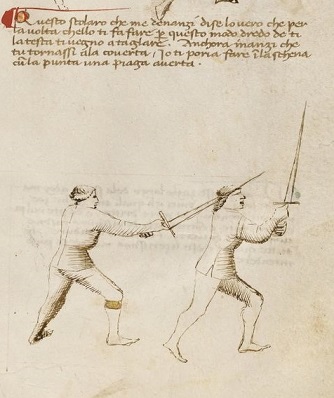 Questo scolaro che me denanzi dise lo vero che per
la volta chello ti fa fare per questo modo dredo de ti
la testa ti vegno a taglare. Anchora inanzi che
tu tornassi ala coverta / Io ti poria fare in la schena
cum la punta una piaga averta.